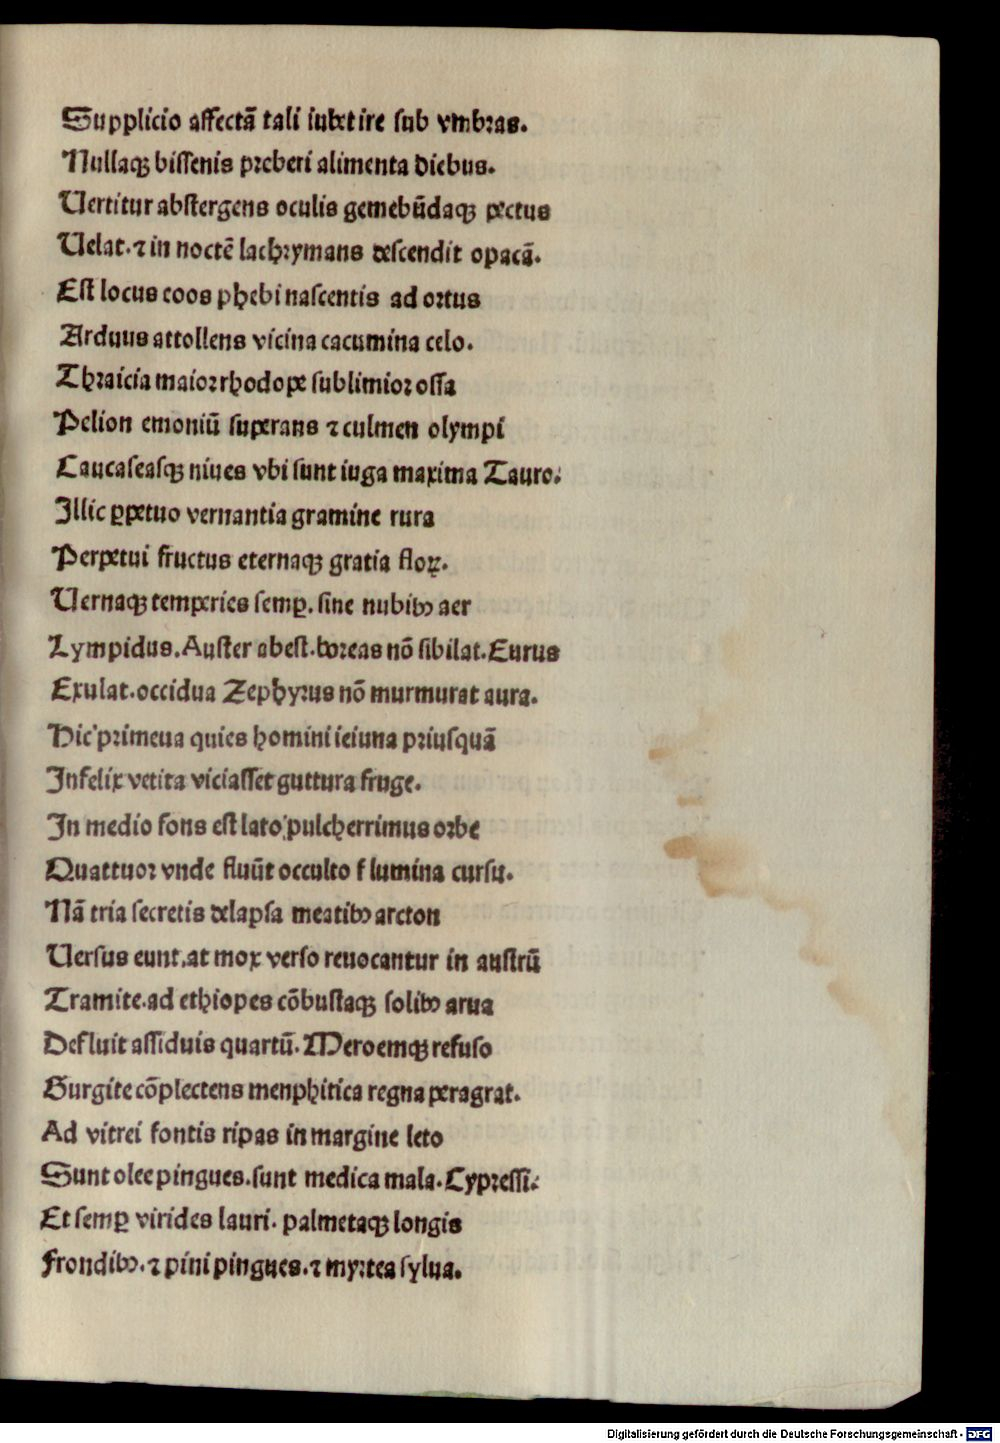 Supplicio affectã tali iubet ire sub vmbras.
Nullaqꝫ bissenis preberi alimenta diebus.
Vertitur abstergens oculis gemebũdaqꝫ pectus
Uelat. ⁊ in noctẽ lachrymans descendit opacã.
Est locus eoos phebi nascentis ad ortus
Arduus attollens vicina cacumina celo.
Thraicia maior rhodope sublimior ossa
Pelion emoniũ superans ⁊ culmen olympi
Caucaseasqꝫ niues vbi sunt iuga maxima Tauro:
Illic ꝑpetuo vernantia gramine rura
Perpetui fructus eternaqꝫ gratia floꝝ.
Uernaqꝫ temperies semꝑ. sine nubibꝰ aer
Lympidus. Auster abest. boreas nõ sibilat. Eurus
Exulat. occidua Zephyrus nõ murmurat aura.
Hic primeua quies homini ieiuna priusquã
Infelix vetita viciasset guttura fruge.
In medio fons est lato pulcherrimus orbe
Quattuor vnde fluũt occulto flumina cursu.
Nã tria secretis delapsa meatibꝰ arcton
Uersus eunt. at mox verso reuocantur in austrũ
Tramite. ad ethiopes cõbustaqꝫ solibꝰ arua
Defluit assiduis quartũ. Meroemqꝫ refuso
Gurgite cõplectens menphitica regna peragrat.
Ad vitrei fontis ripas in margine leto
Sunt olee pingues. sunt medica mala. Cypressi:
Et semꝑ virides lauri. palmetaqꝫ longis
Frondibꝰ. ⁊ pini pingues. ⁊ myrtea sylua.
Digitalisierung gefördert durch die Deutsche Forschungsgemeinschaft - DFG